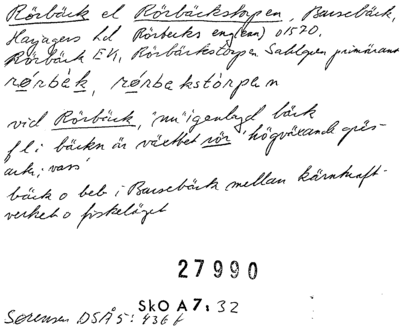 Rörbäck el Rörbäckstorpen, Barsebäck,
Harjagers hd Rörbecks eng(een) 01570.
Rörbäck EK, Rörbäckstorpen Sahlgren primärant
rörbäk, rörbakstórpen
vid Rörbäck, "nu" igenlagd bäck
f l i bäckn än växtbet rör 'högväxande gräs-
art; vass'
bäck o beb i Barsebäck mellan kärnkraft-
verket o fiskeläget
27990
SkO A7: 32
Sørensen DSÅ 5: 436 f